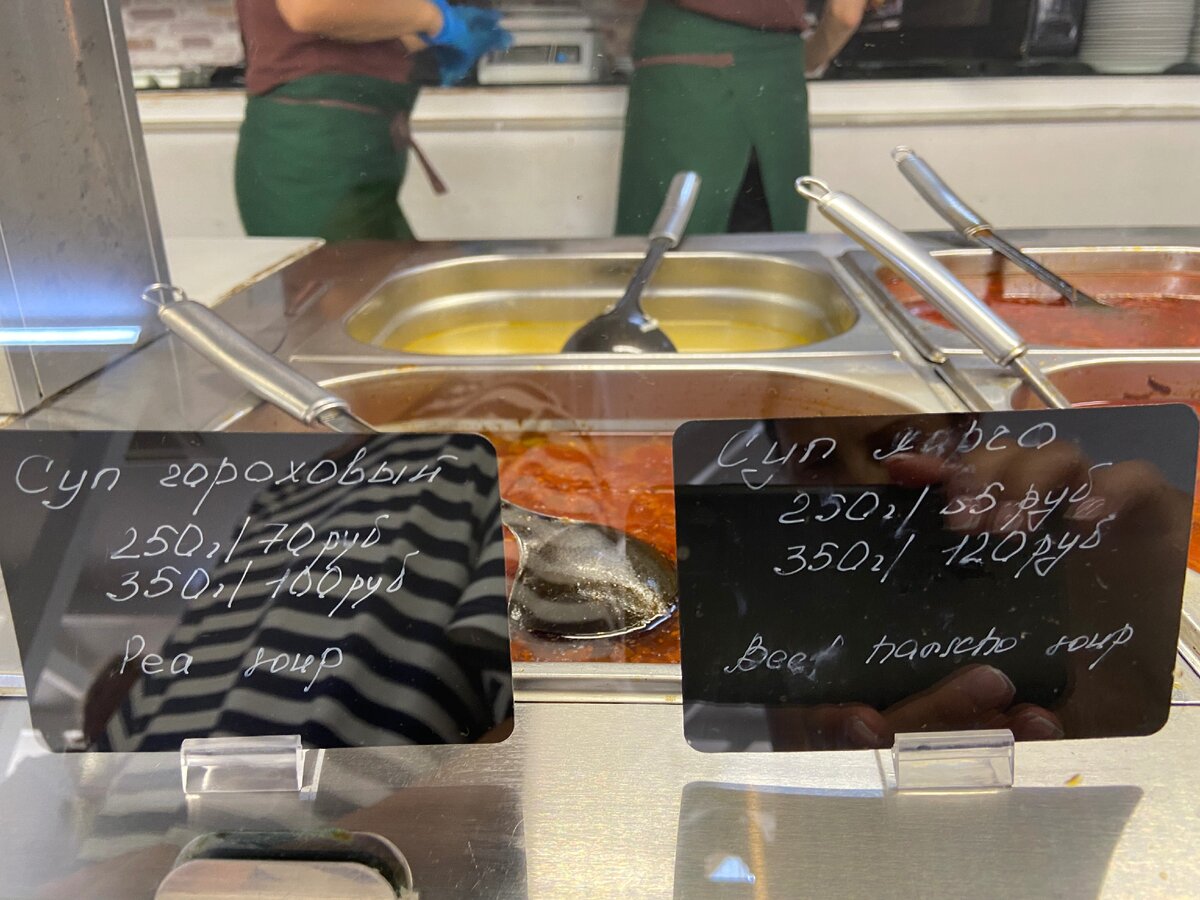 Суп гороховый
250г/70руб
350г/100руб
Pea soup
Суп харчо
250г/ 55 руб
350г/ 120руб
Beef harscho soup